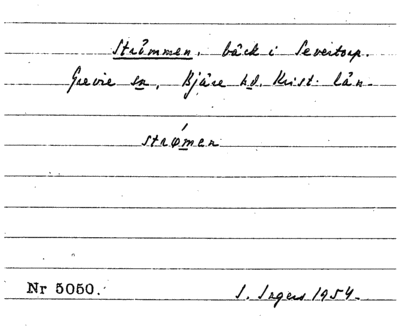 Strömmen, bäck i Severtorp.
Grevie sn, Bjäre hd. Krist. län.
strø´men
Nr 5050. S. Ingers 1954.